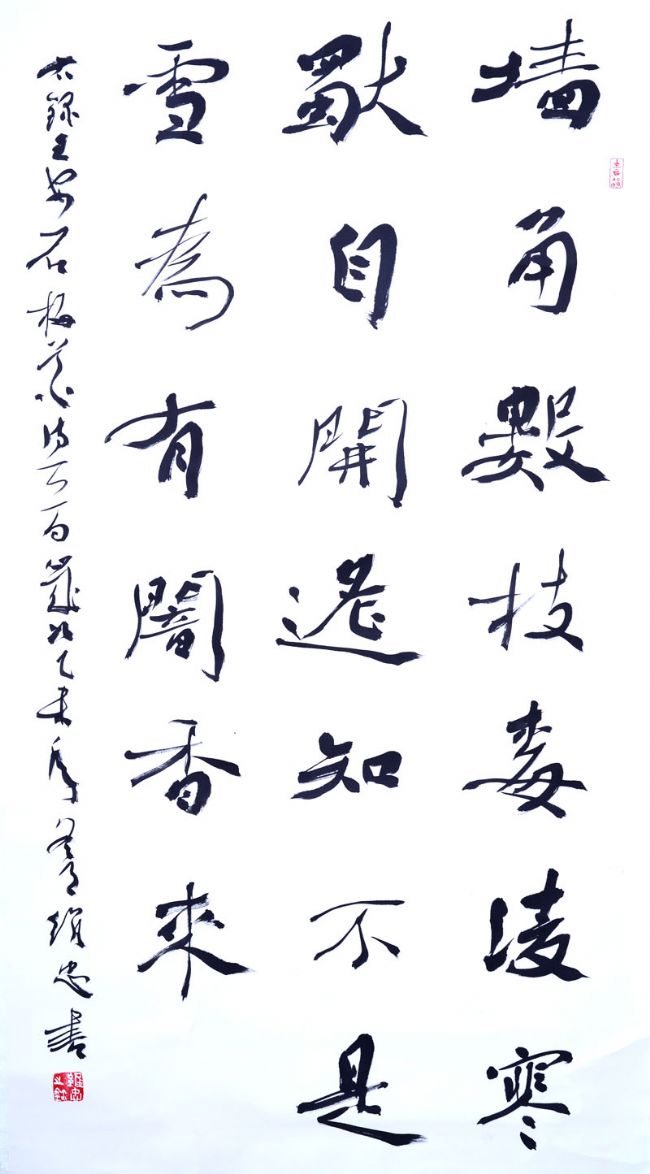 墙角數枝梅淩寒
獨自開遙知不是
雪為有闇香來
右錄王安石梅花詩一首歲次乙未年忠書